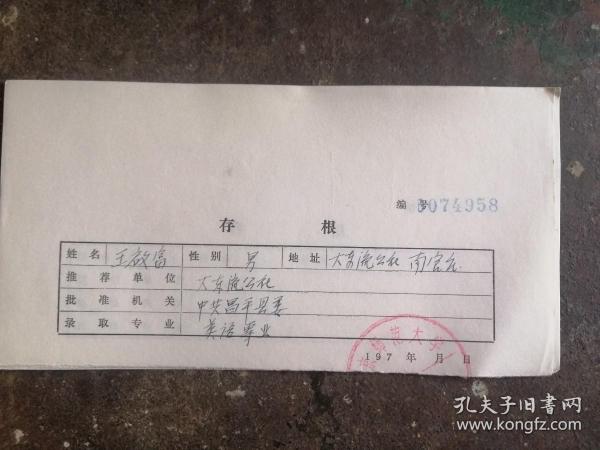 编号 0074958
存根
姓名 王啟富 性别 男 地址 大东流公社 南官庄
推荐单位 大东流公社
批准机关 中共昌平县委
录取专业 英语专业
师范大学
197 年 月 日
孔夫子旧书网
www.kongfz.com